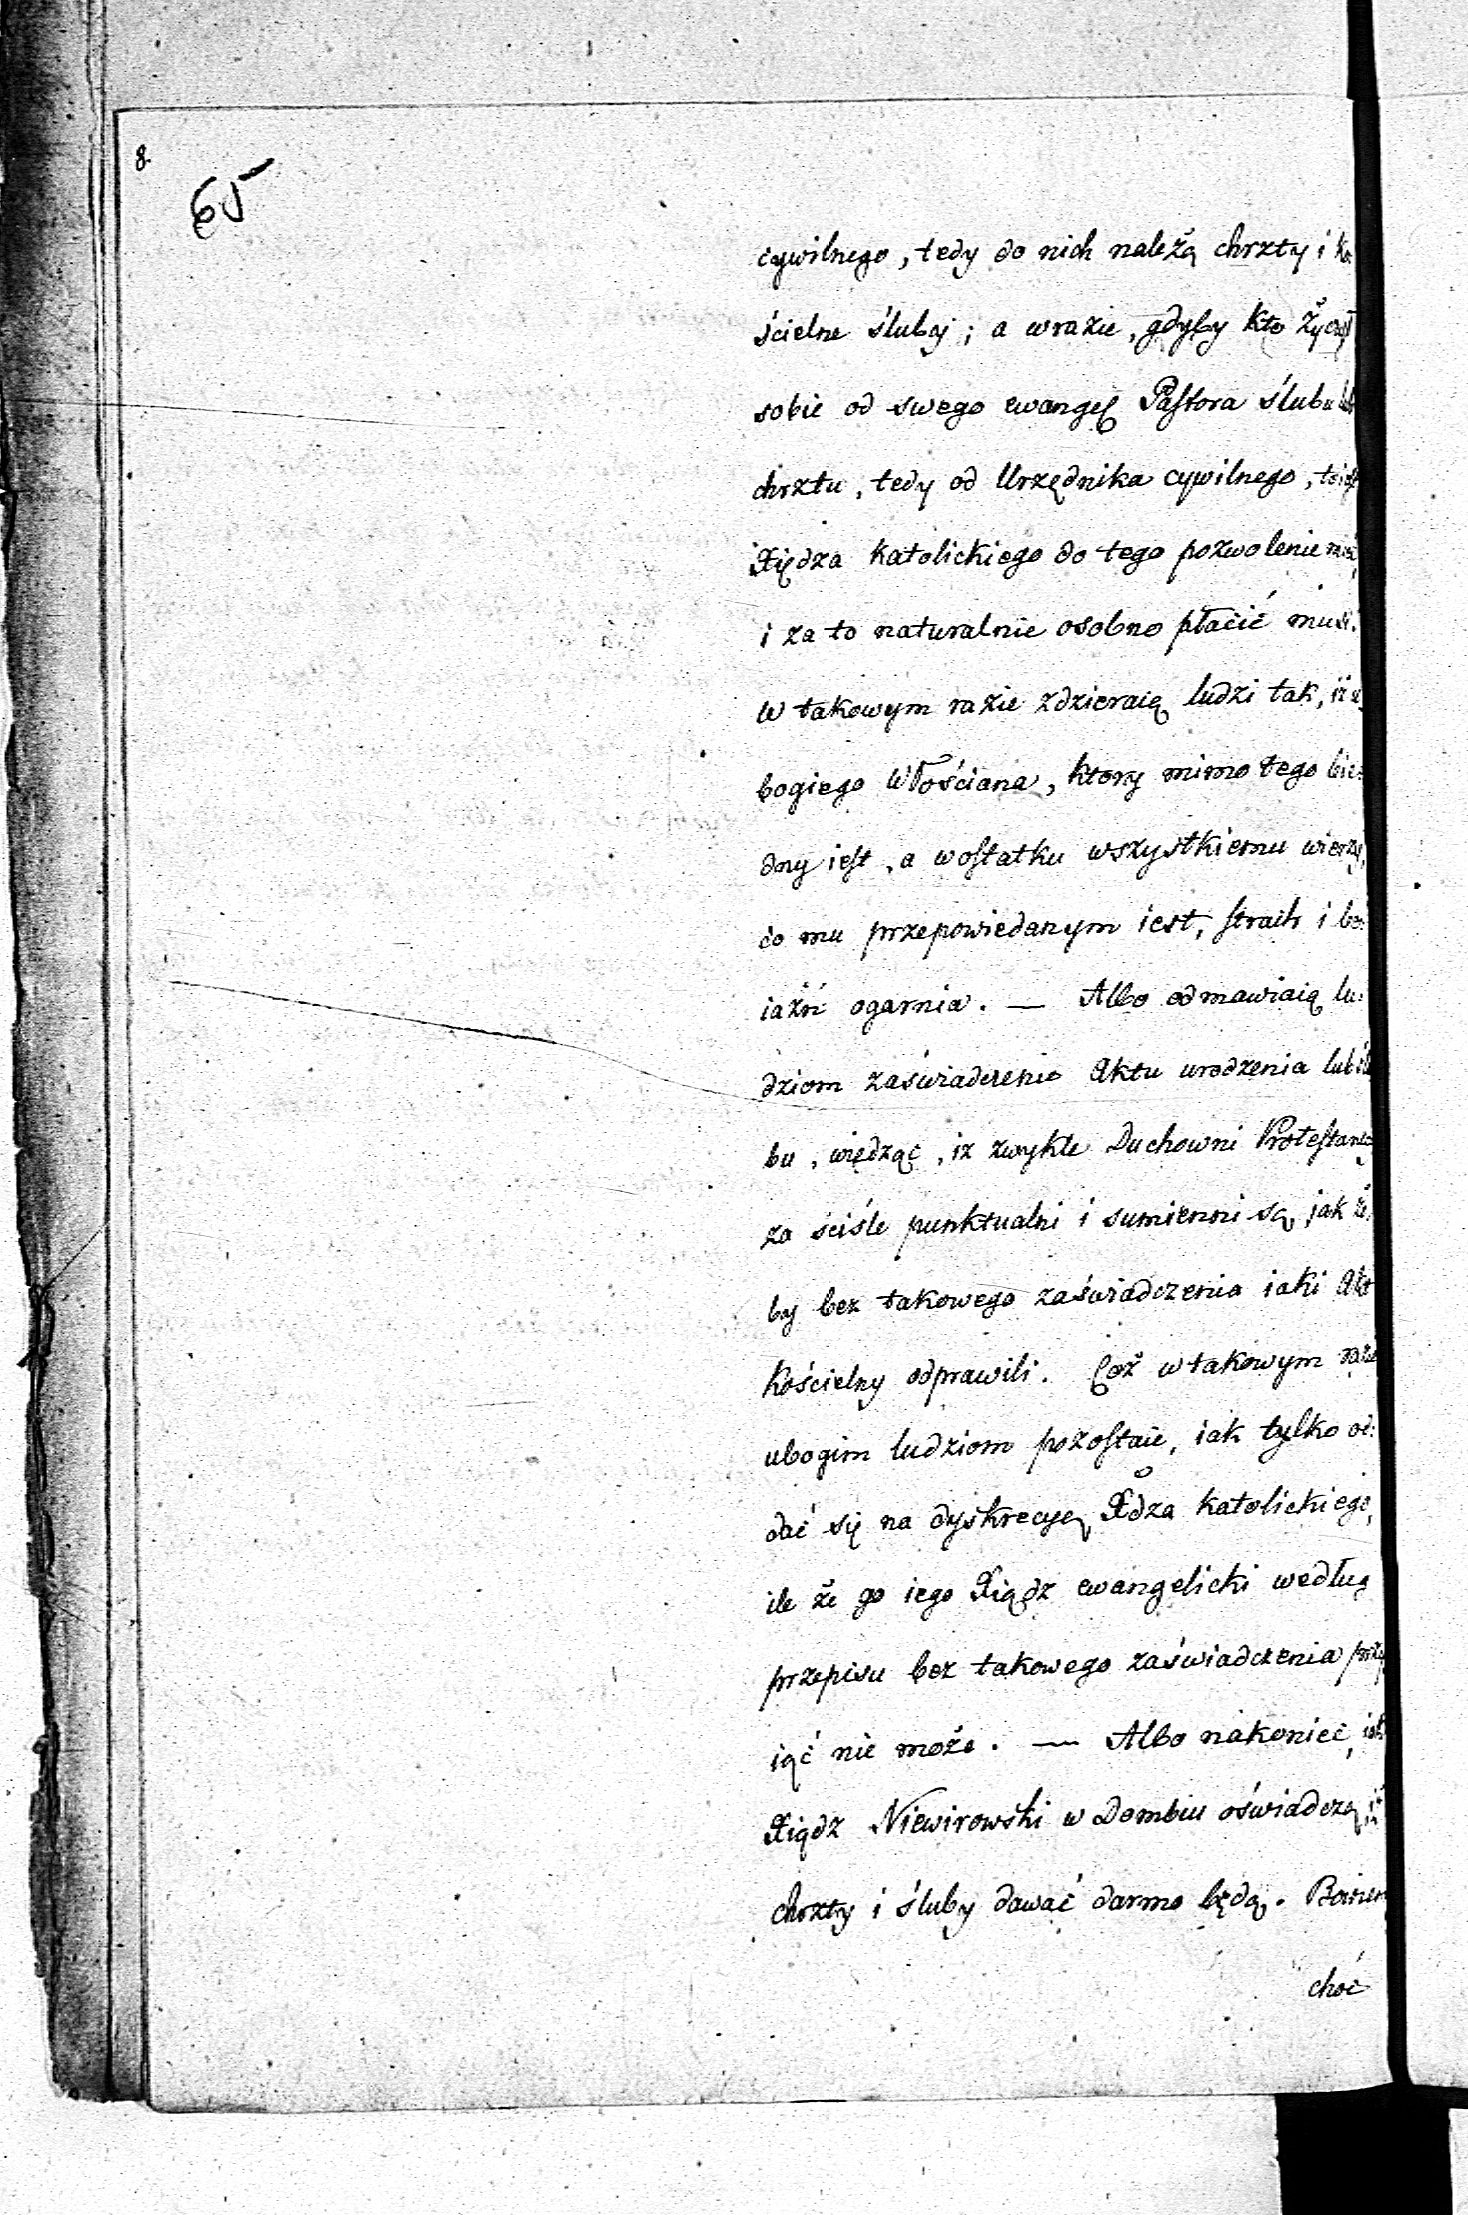 8.
65
cywilnego, tedy do nich należą chrzty i ko
ścielne śluby; a wrazie, gdyby kto życzył
sobie od swego ewangel Pastora ślubu lub
chrztu, tedy od Urzędnika cywilnego, to iest
Xiędza katolickiego do tego pozwolenie mieć
i za to naturalnie osobno płacić musi.
W takowym razie zdzieraią ludzi tak, iż u
bogiego Włościana, ktory mimo tego bie:
dny iest, a wostatku wszystkiemu wierzy,
co mu przepowiedanym iest, strach i bo:
iaźń ogarnia. — Albo odmawiaią lu:
dziom zaświadczenie Aktu urodzenia lub ślu
bu, więdząc, iz zwykle Duchowni Protestanc
za ściśle punktualni i sumienni są, jak że
by bez takowego zaświadczenia iaki Akt
kościelny odprawili. Coż w takowym razie
ubogim ludziom pozostaie, iak tylko od:
dać się na dyskrecyę Xdza katolickiego,
ile że go iego Xiądz ewangelicki według
przepisu bez takowego zaświadczenia przy
iąć nie może. — Albo nakoniec, iak
Xiądz Niewirowski w Dombiu oświadczą, iż
chrzty i śluby dawać darmo będą. Bowiem
choć